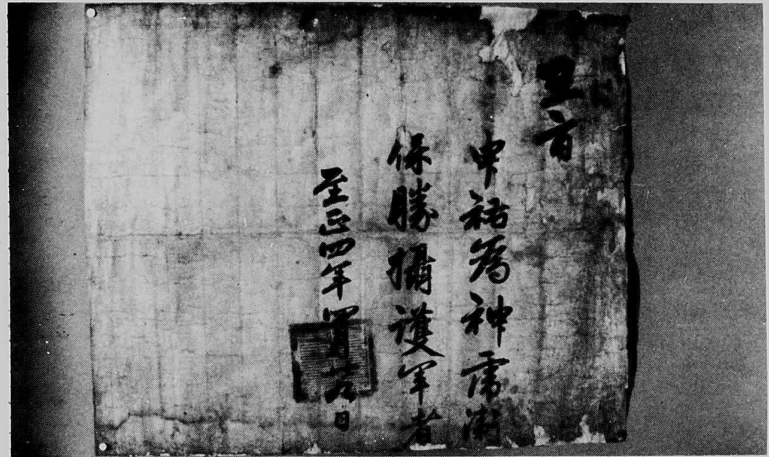 王旨
申祐為神虎衛
保勝攝護軍者
至正四年四月卄九日